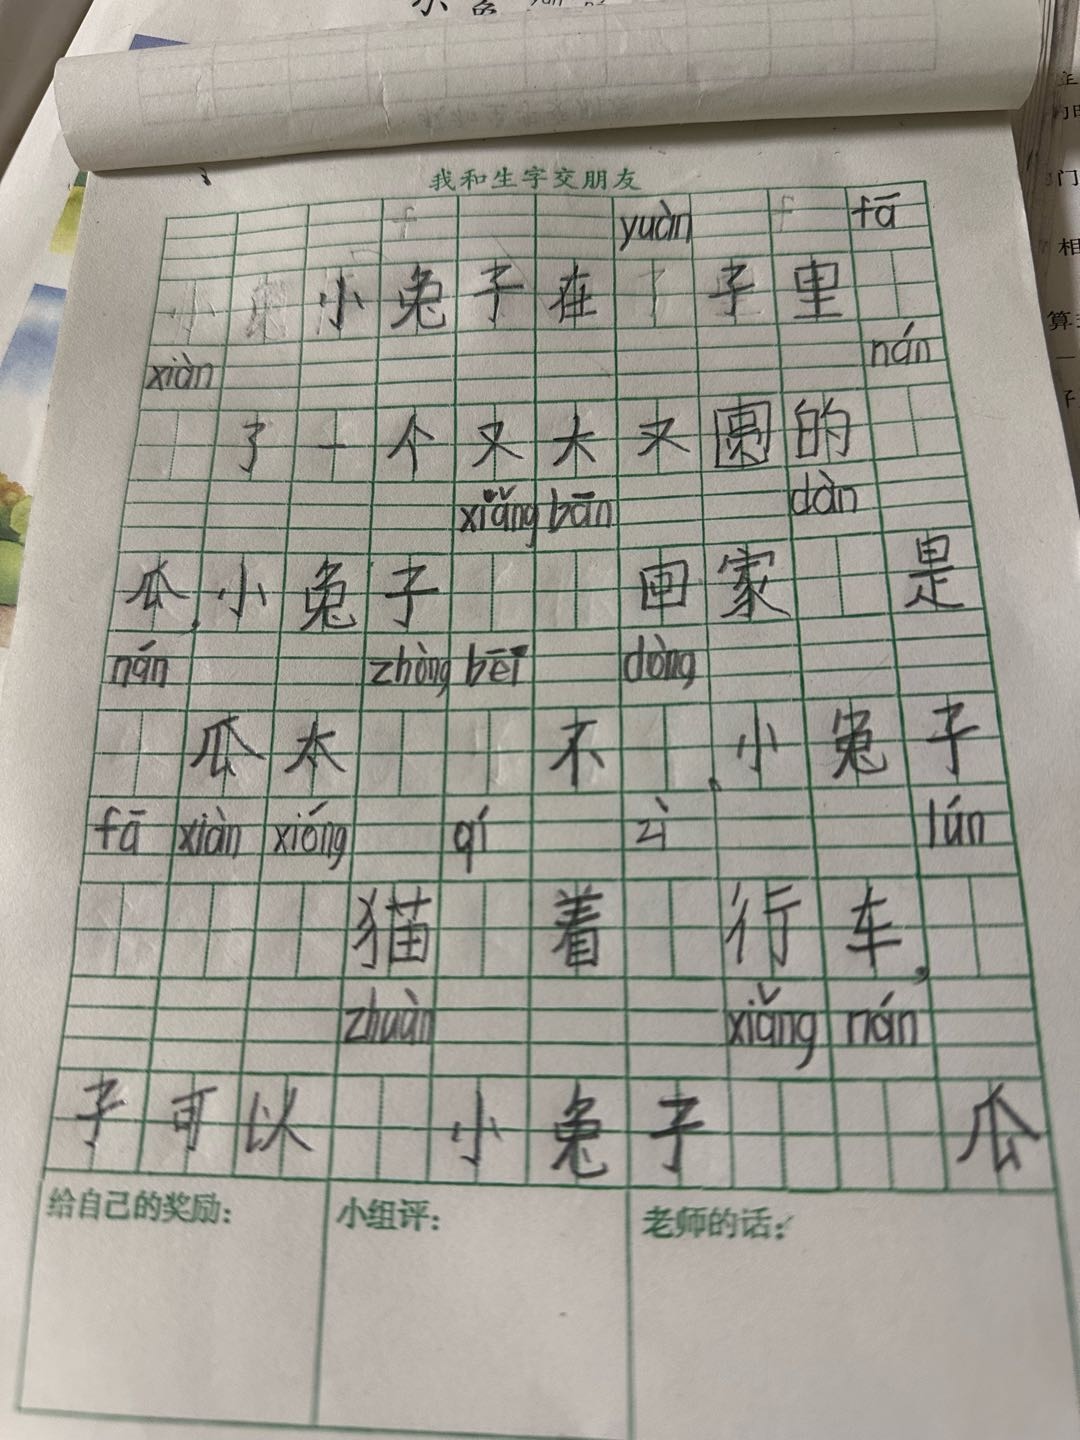 我和生字交朋友
yuàn fā
小兔子在 子里
xiàn nán
了一个又大又圆的
xiǎng bān dàn
瓜,小兔子 回家 是
nán zhòng bēi dòng
瓜太 不 ,小兔子
fā xiàn xióng qí zì lún
猫 着 行车,
zhuàn xiǎng nán
子可以 小兔子 瓜
给自己的奖励:
小组评:
老师的话: